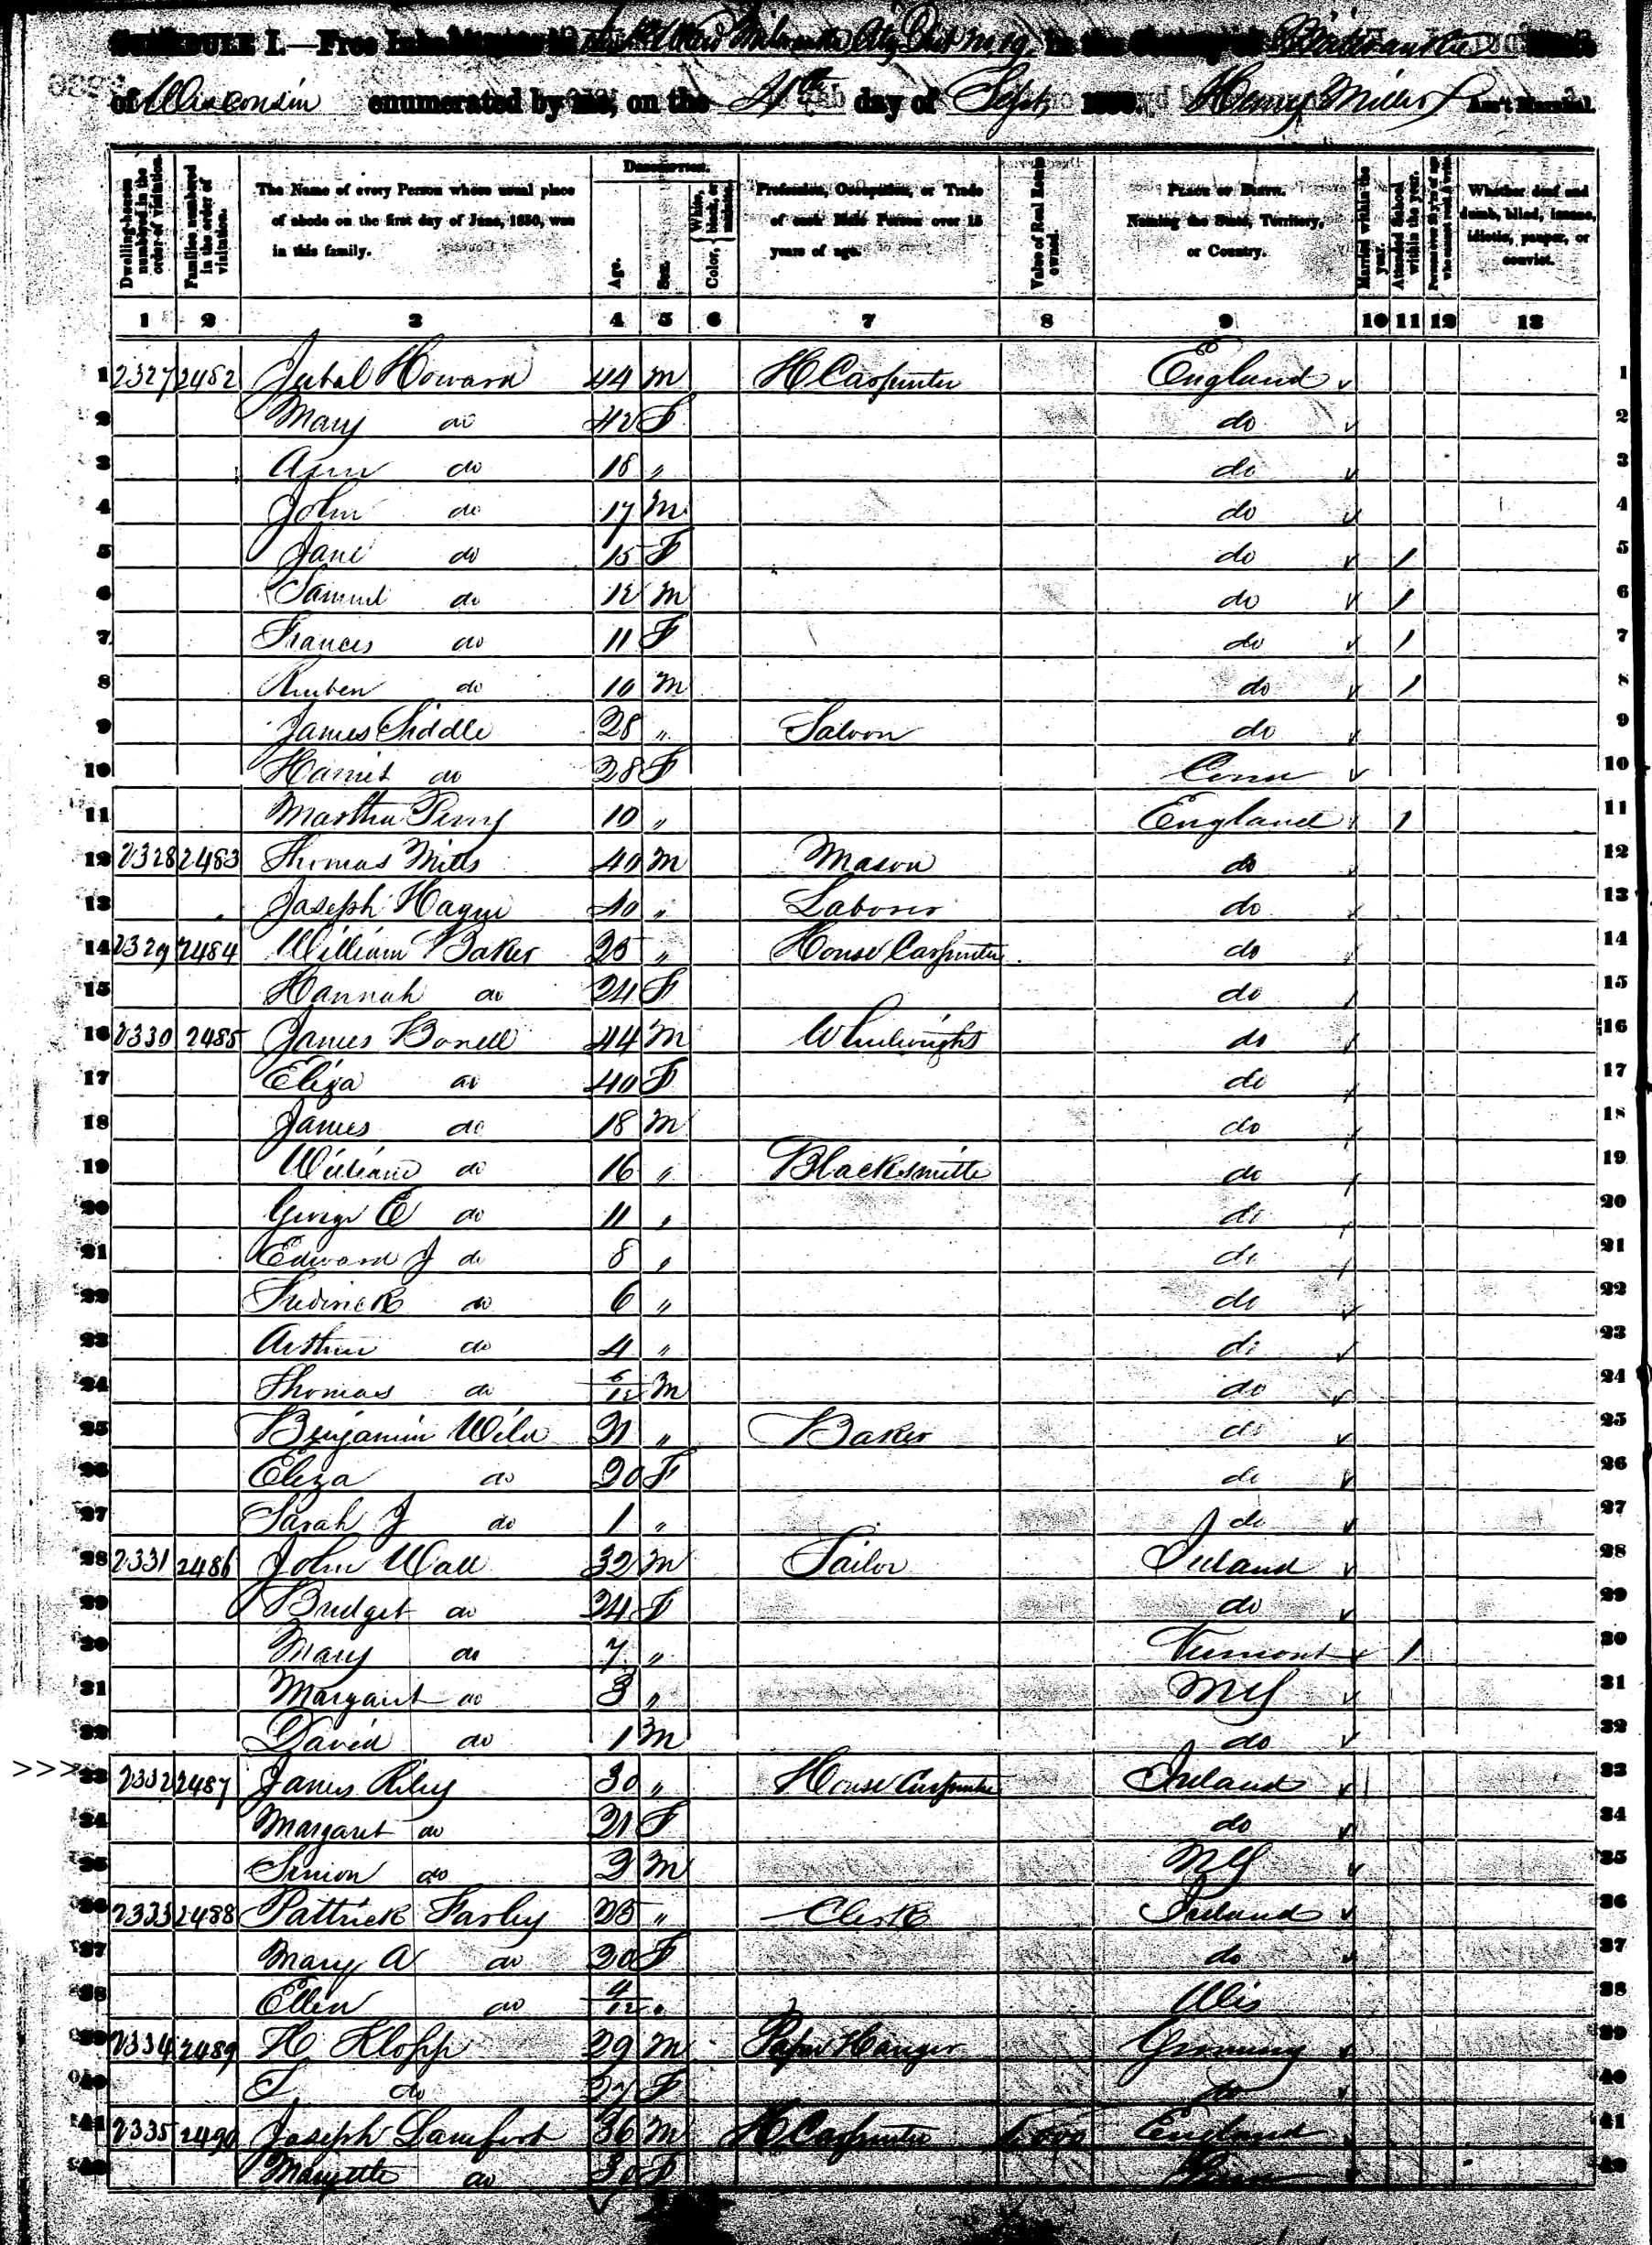 SCHEDULE I.—Free Inhabitants in the 1st Ward Milwaukie City Dist No 19, in the County of Milwaukie State
of Wisconsin enumerated by me, on the 4th day of Sept, 1850. Henry Miller Ass't Marshal.
Dwelling-houses numbered in the order of visitation.
Families numbered in the order of visitation.
The Name of every Person whose usual place of abode on the first day of June, 1850, was in this family.
Description.
Age.
Sex.
Color, White, black, or mulatto.
Profession, Occupation, or Trade of each Male Person over 15 years of age.
Value of Real Estate owned.
Place of Birth. Naming the State, Territory, or Country.
Married within the year.
Attended School within the year.
Persons over 20 y'rs of age who cannot read & write.
Whether deaf and dumb, blind, insane, idiotic, pauper, or convict.
1 2 3 4 5 6 7 8 9 10 11 12 13
1 2327 2482 Jubal Howard 44 M H Carpenter England 1
2 Mary do 42 F do 2
3 Ann do 18 " do 3
4 John do 17 M do 4
5 Jane do 15 F do 1 5
6 Samuel do 12 M do 1 6
7 Frances do 11 F do 1 7
8 Ruben do 10 M do 1 8
9 James Siddle 28 " Saloon do 9
10 Harriet do 28 F Conn 10
11 Martha Perry 10 " England 1 11
12 2328 2483 Thomas Mills 40 M Mason do 12
13 Joseph Hague 40 " Laborer do 13
14 2329 2484 William Baker 25 " House Carpenter do 14
15 Hannah do 24 F do 15
16 2330 2485 James Bonell 44 M Wheelwright do 16
17 Eliza do 40 F do 17
18 James do 18 M do 18
19 William do 16 " Blacksmith do 19
20 George E do 11 " do 20
21 Edward J do 8 " do 21
22 Frederick do 6 " do 22
23 Arthur do 4 " do 23
24 Thomas do 6/12 M do 24
25 Benjamin Wild 21 " Baker do 25
26 Eliza do 20 F do 26
27 Sarah J do 1 " do 27
28 2331 2486 John Wall 32 M Tailor Ireland 28
29 Bridget do 24 F do 29
30 Mary do 7 " Vermont 1 30
31 Margaret do 3 " NY 31
32 David do 1 M do 32
>>> 33 2332 2487 James Riley 30 " House Carpenter Ireland 33
34 Margaret do 21 F do 34
35 Simon do 2 M NY 35
36 2333 2488 Pattrick Farley 25 " Clerk Ireland 36
37 Mary A do 20 F do 37
38 Ellen do 4/12 " Wis 38
39 2334 2489 H Klopp 29 M Paper Hanger Germany 39
40 S do 27 F do 40
41 2335 2490 Joseph Lamfort 36 M H Carpenter England 41
42 Maryette do 30 F 42